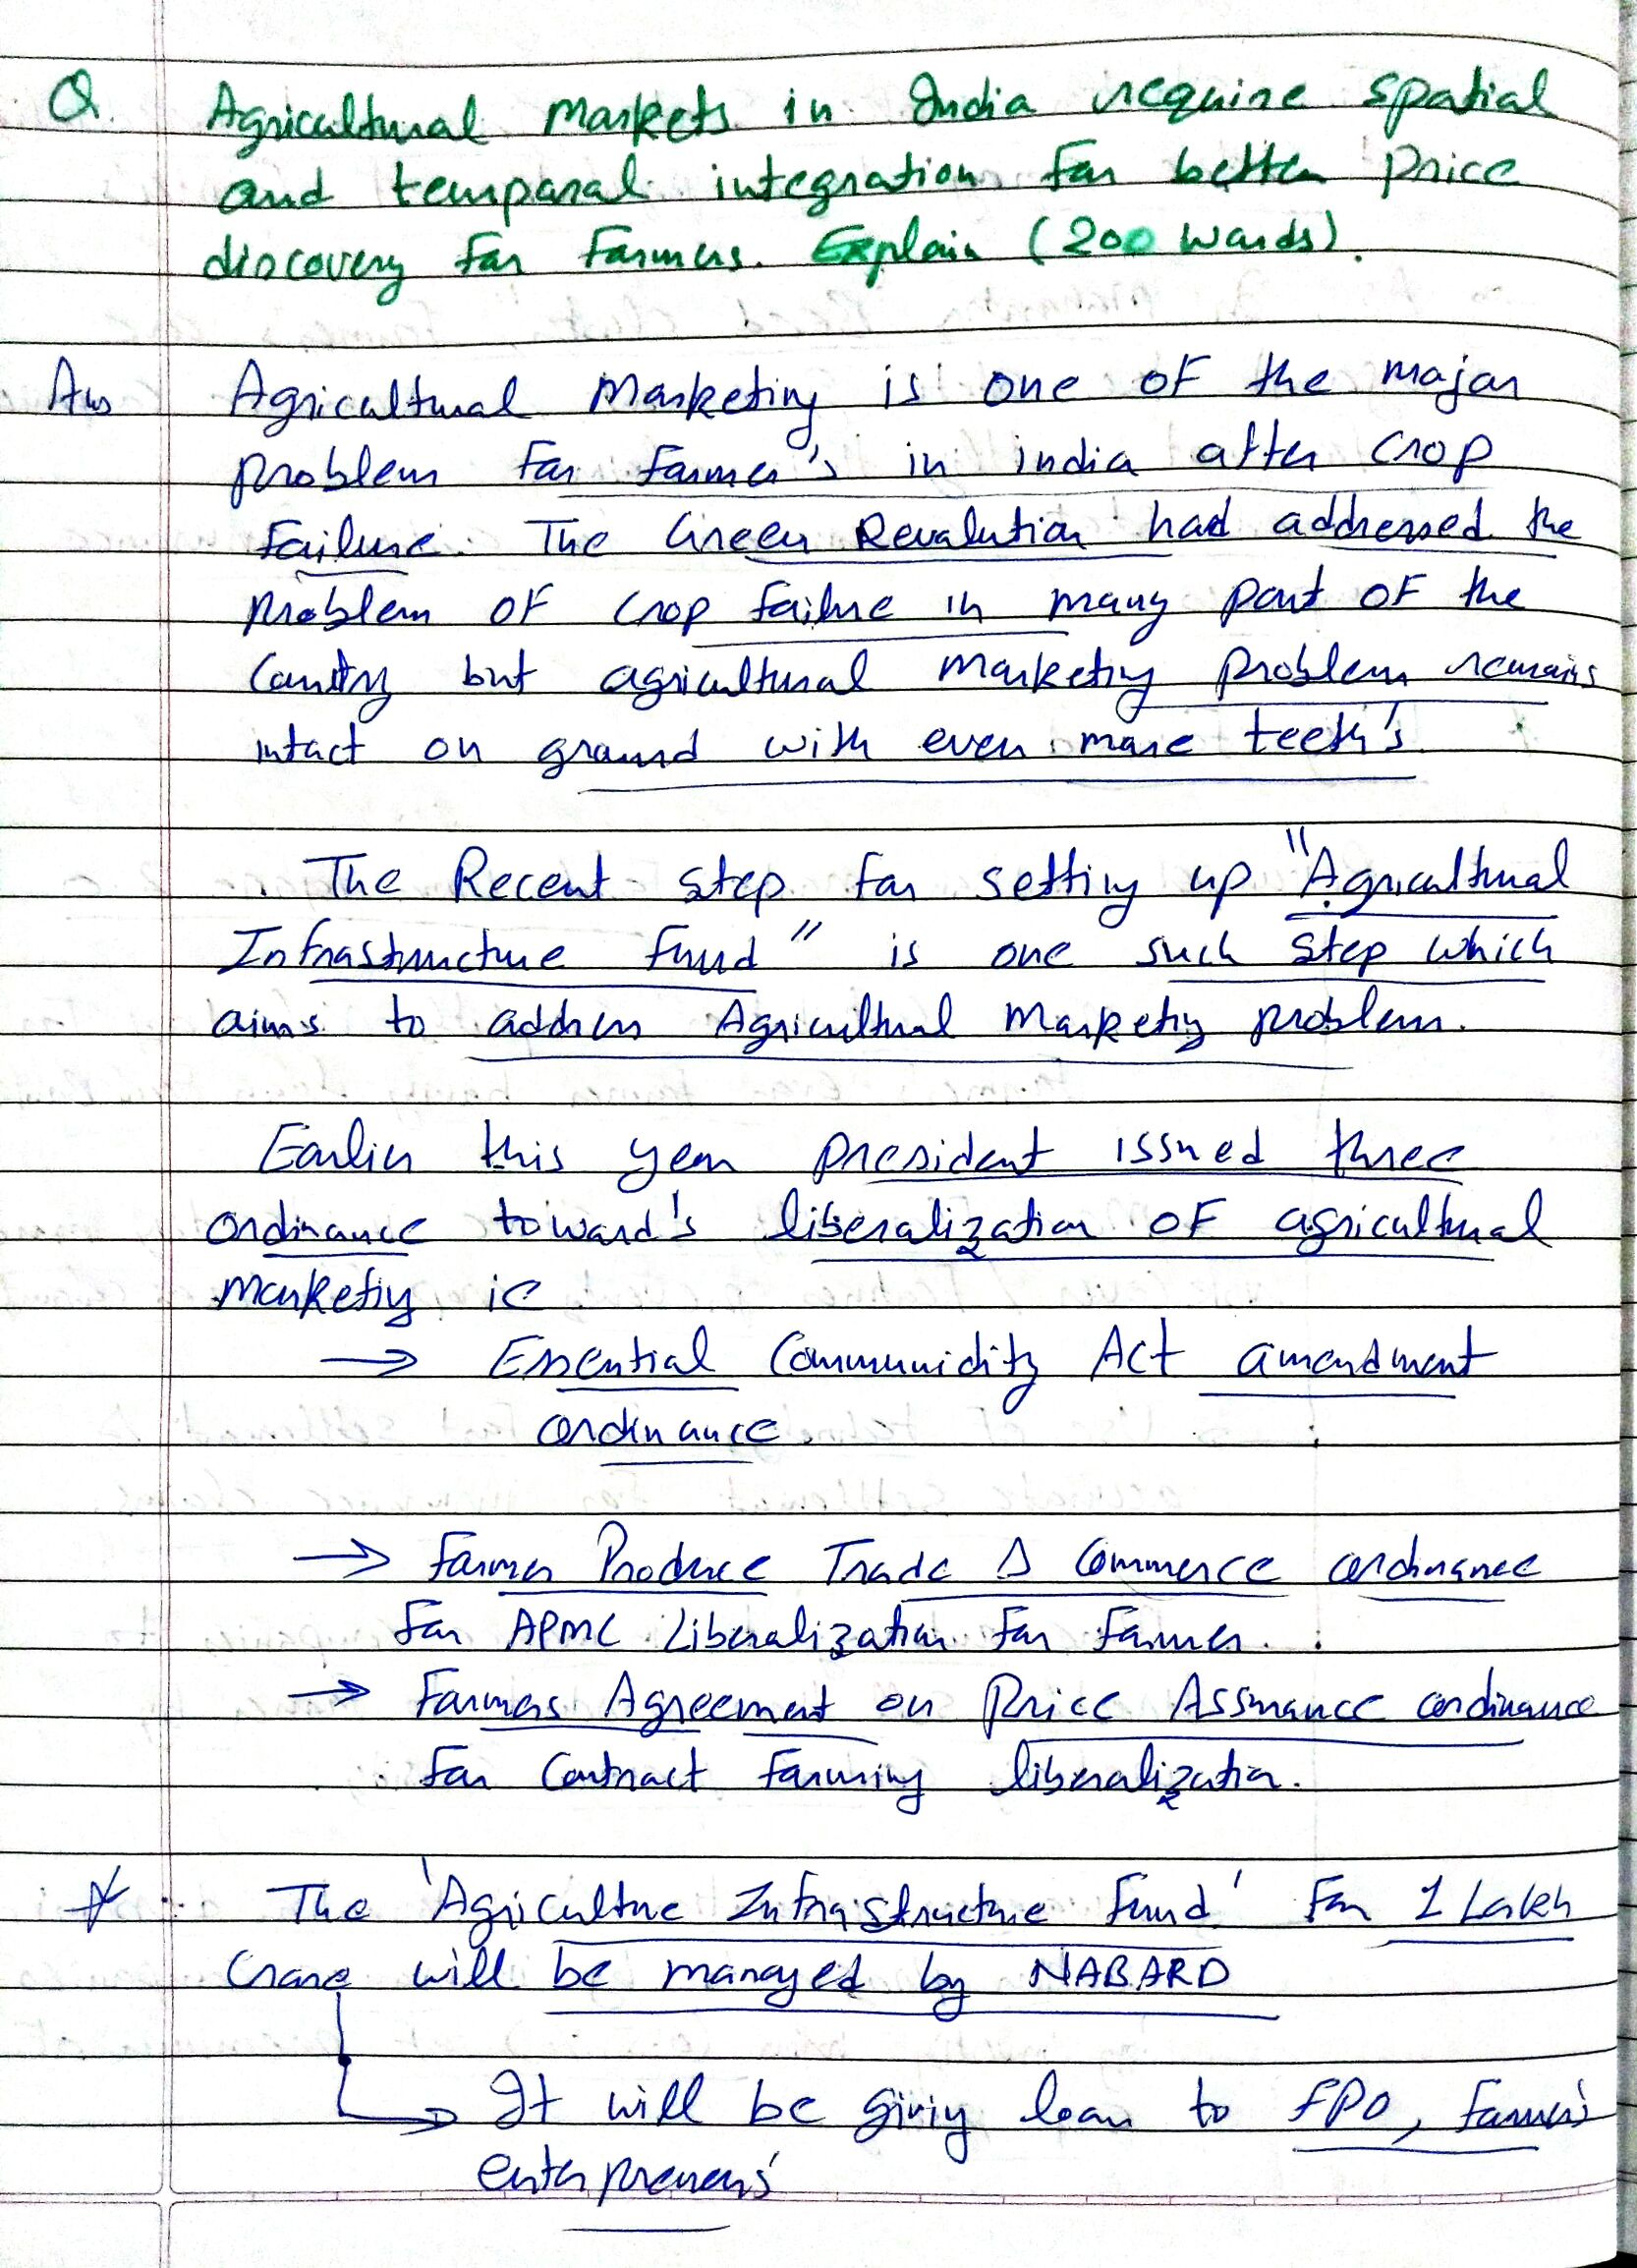 Q. Agricultural Markets in India require spatial
and temporal integration for better price
discovery for farmers. Explain (200 words).
Ans Agricultural Marketing is one of the major
problem for farmer's in india after crop
failure. The Green Revolution had addressed the
problem of crop failure in many part of the
Country but agricultural marketing problem remains
intact on ground with even more teeth's.
The Recent step for setting up "Agricultural
Infrastructure fund" is one such step which
aims to address Agricultural Marketing problem.
Earlier this year president issued three
ordinance toward's liberalization of agricultural
marketing ie
→ Essential Communidity Act amendment
ordinance.
→ Farmer Produce Trade & Commerce ordinance
for APMC Liberalization for Farmer.
→ Farmers Agreement on Price Assurance ordinance
for Contract farming liberalization.
* The 'Agriculture Infrastructure fund' for 1 Lakh
Crore will be managed by NABARD
It will be giving loan to FPO, farmer's
enterpreneurs'